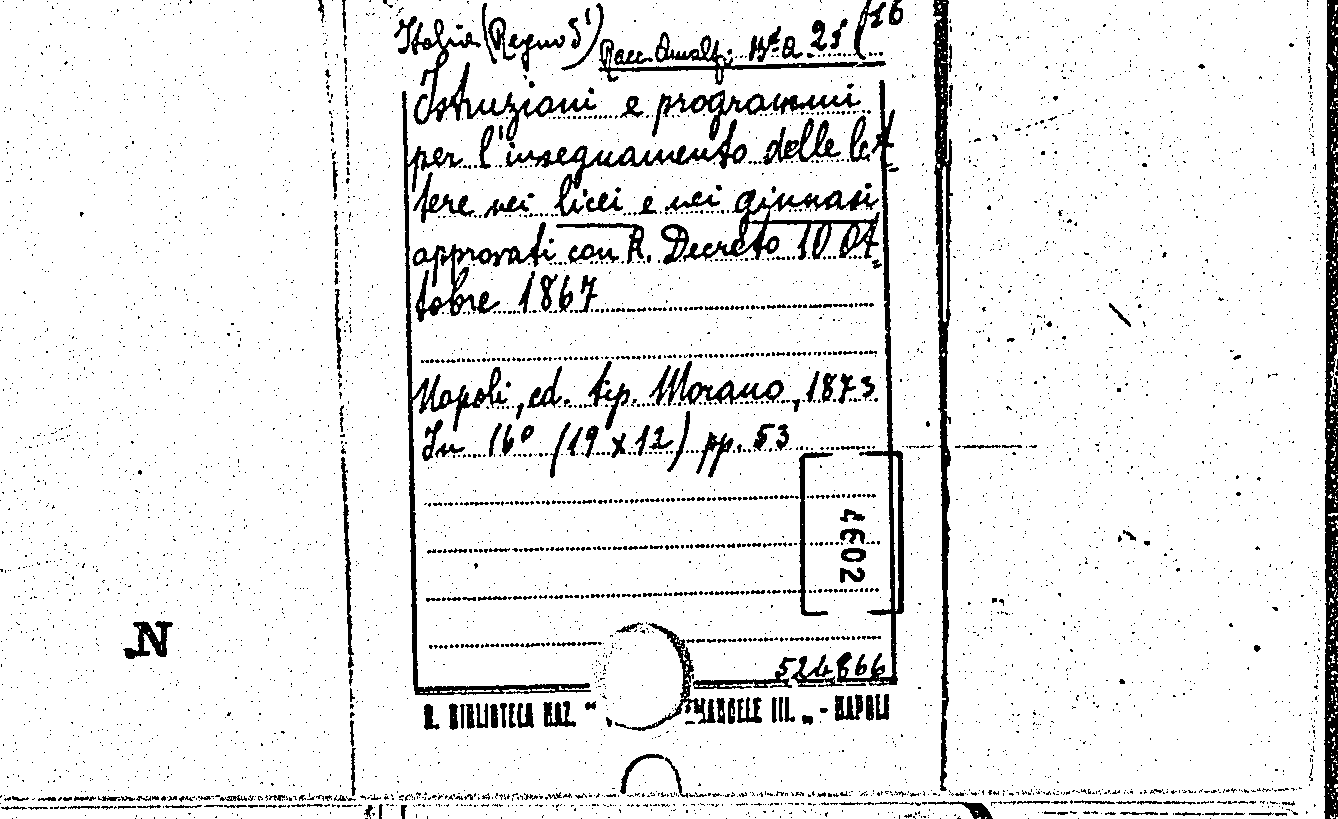 Italia (Regno d') Racc. Amalf. Bta A 25 (16
Istruzioni e programmi
per l'insegnamento delle let=
tere nei licei e nei ginnasi
approvati con R. Decreto 10 Ot=
tobre 1867
Napoli, ed. tip. Morano, 1873
In 16° (19 x 12) pp. 53
4602
524866
R. BIBLIOTECA NAZ. " MANUELE III. „ - NAPOLI
N.